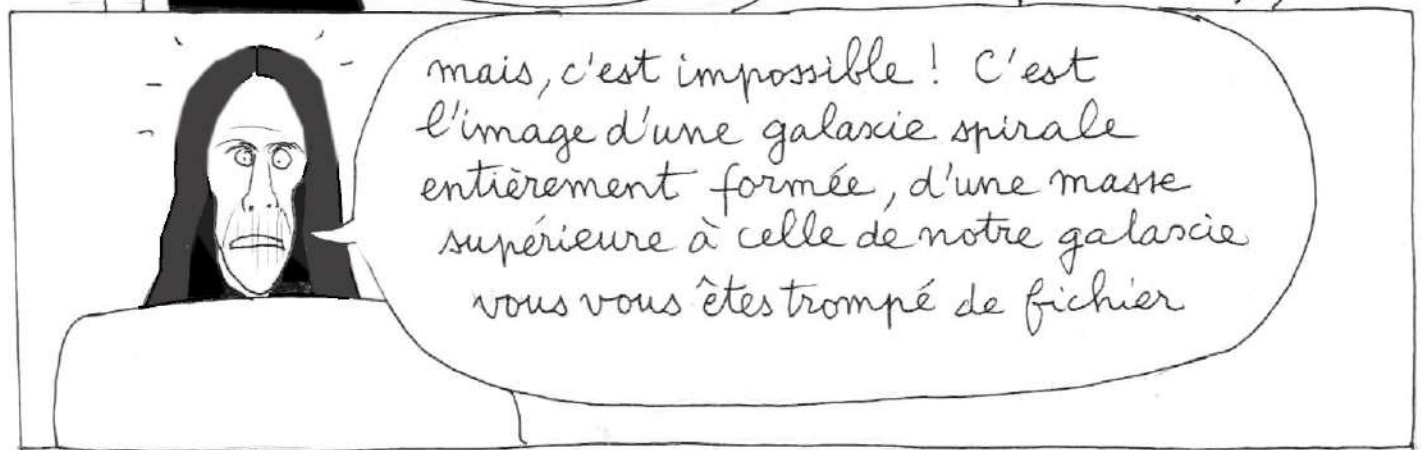 mais, c'est impossible ! C'est
l'image d'une galaxie spirale
entièrement formée, d'une masse
supérieure à celle de notre galaxie
vous vous êtes trompé de fichier